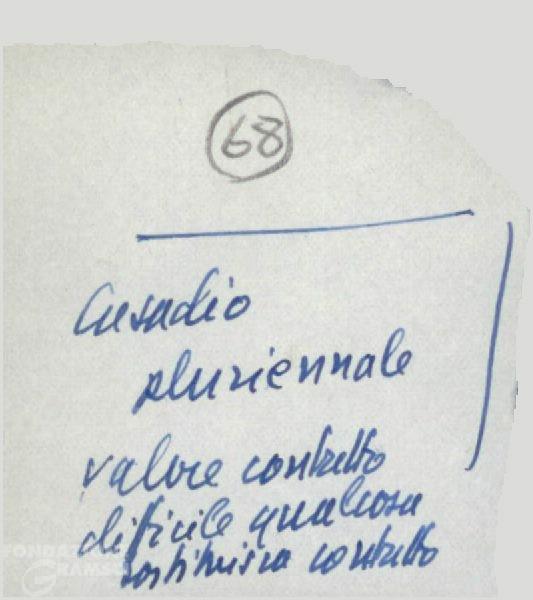 68
Cusadio
pluriennale
valore contratto
difficile qualcosa
sostituisca contratto
FONDAZ
GRAMSCI